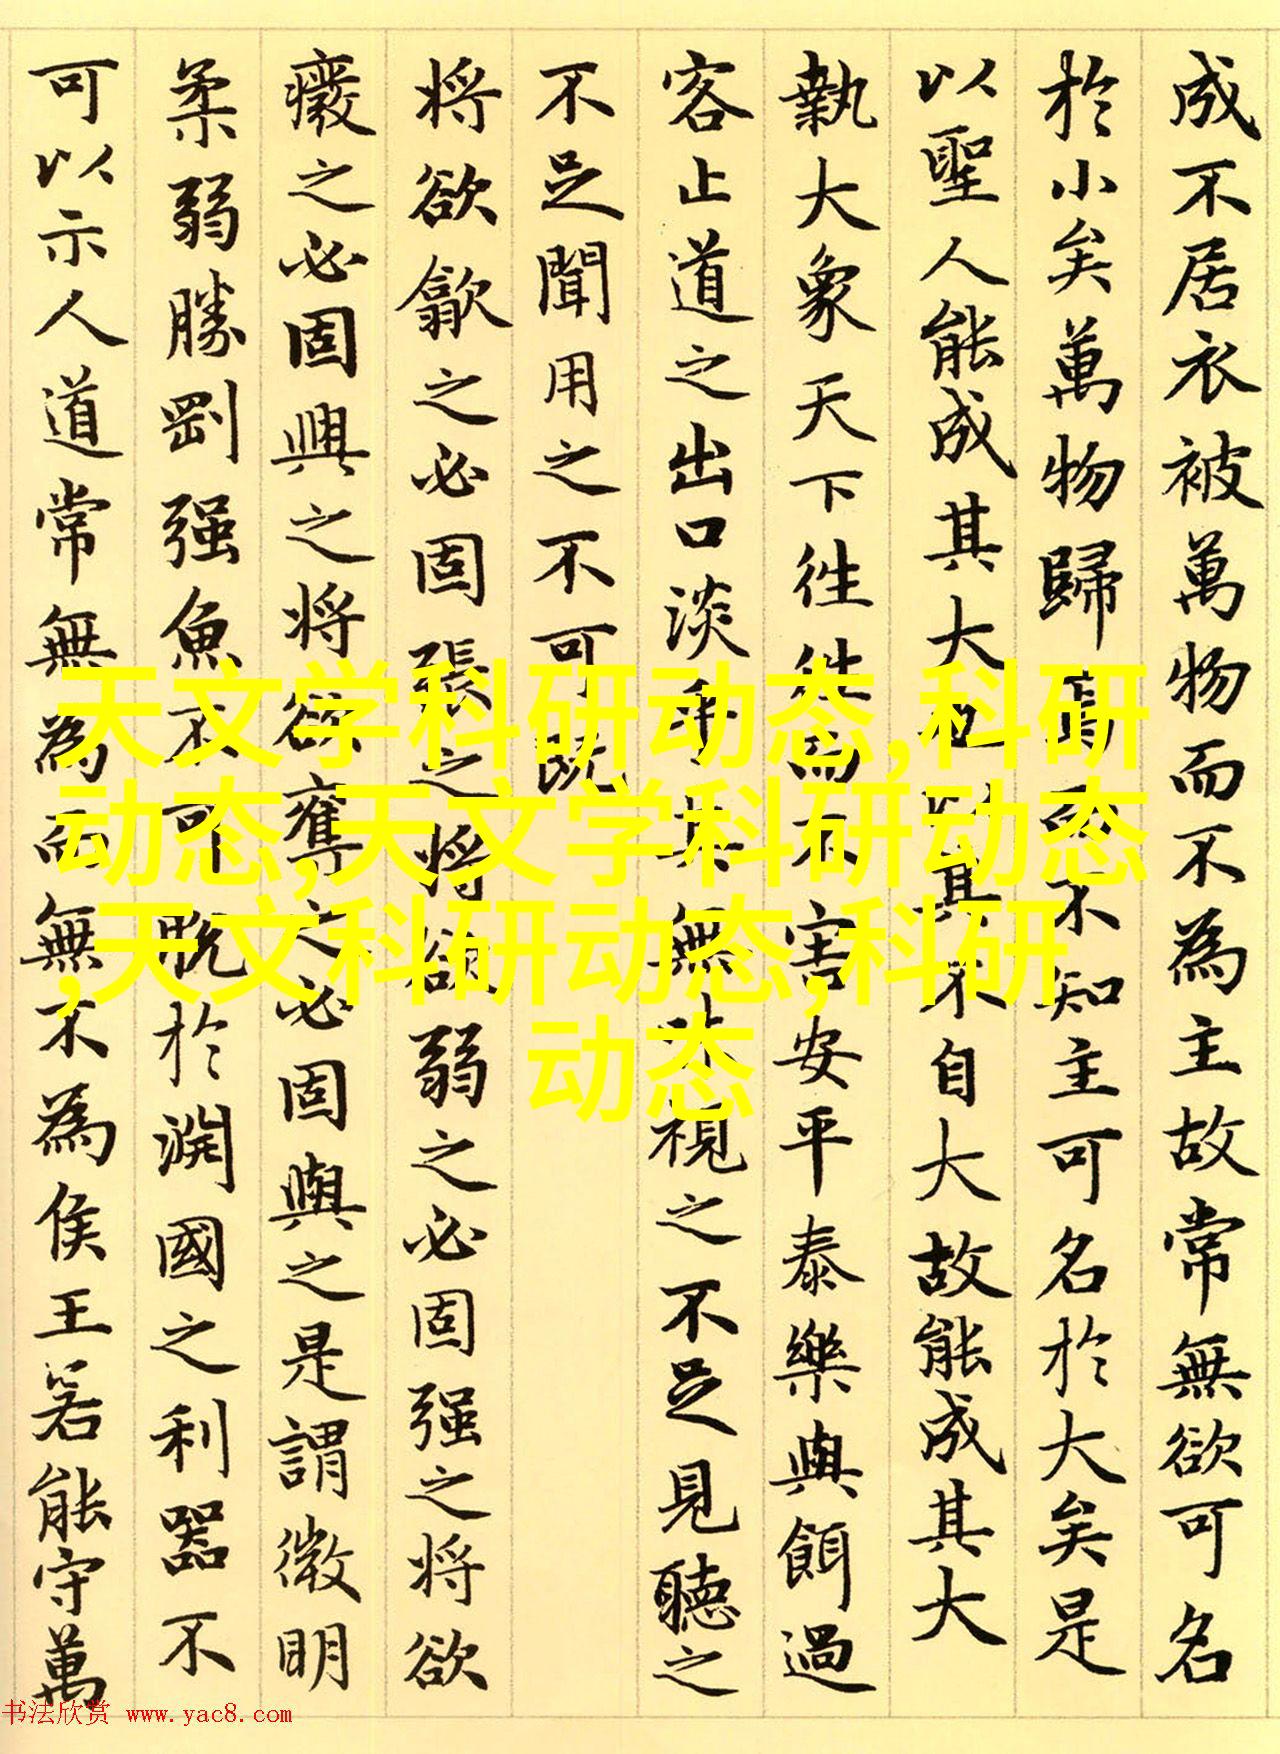 成不居衣被萬物而不為主故常無欲可名
於小矣萬物歸焉而不知主可名於大矣是
以聖人能成其大也以其不自大故能成其大
執大象天下往往而不害安平泰樂與餌過
客止道之出口淡乎其無味視之不足見聽之
不足聞用之不可既
將欲歙之必固張之將欲弱之必固强之將欲
癈之必固興之將欲奪之必固與之是謂微明
柔弱勝剛强魚不可脱於淵國之利器不
可以示人道常無為而無不為侯王若能守萬
天文学科研动态,科研
动态,天文学科研动态
,天文科研动态,科研
动态
书法欣赏 www.yac8.com